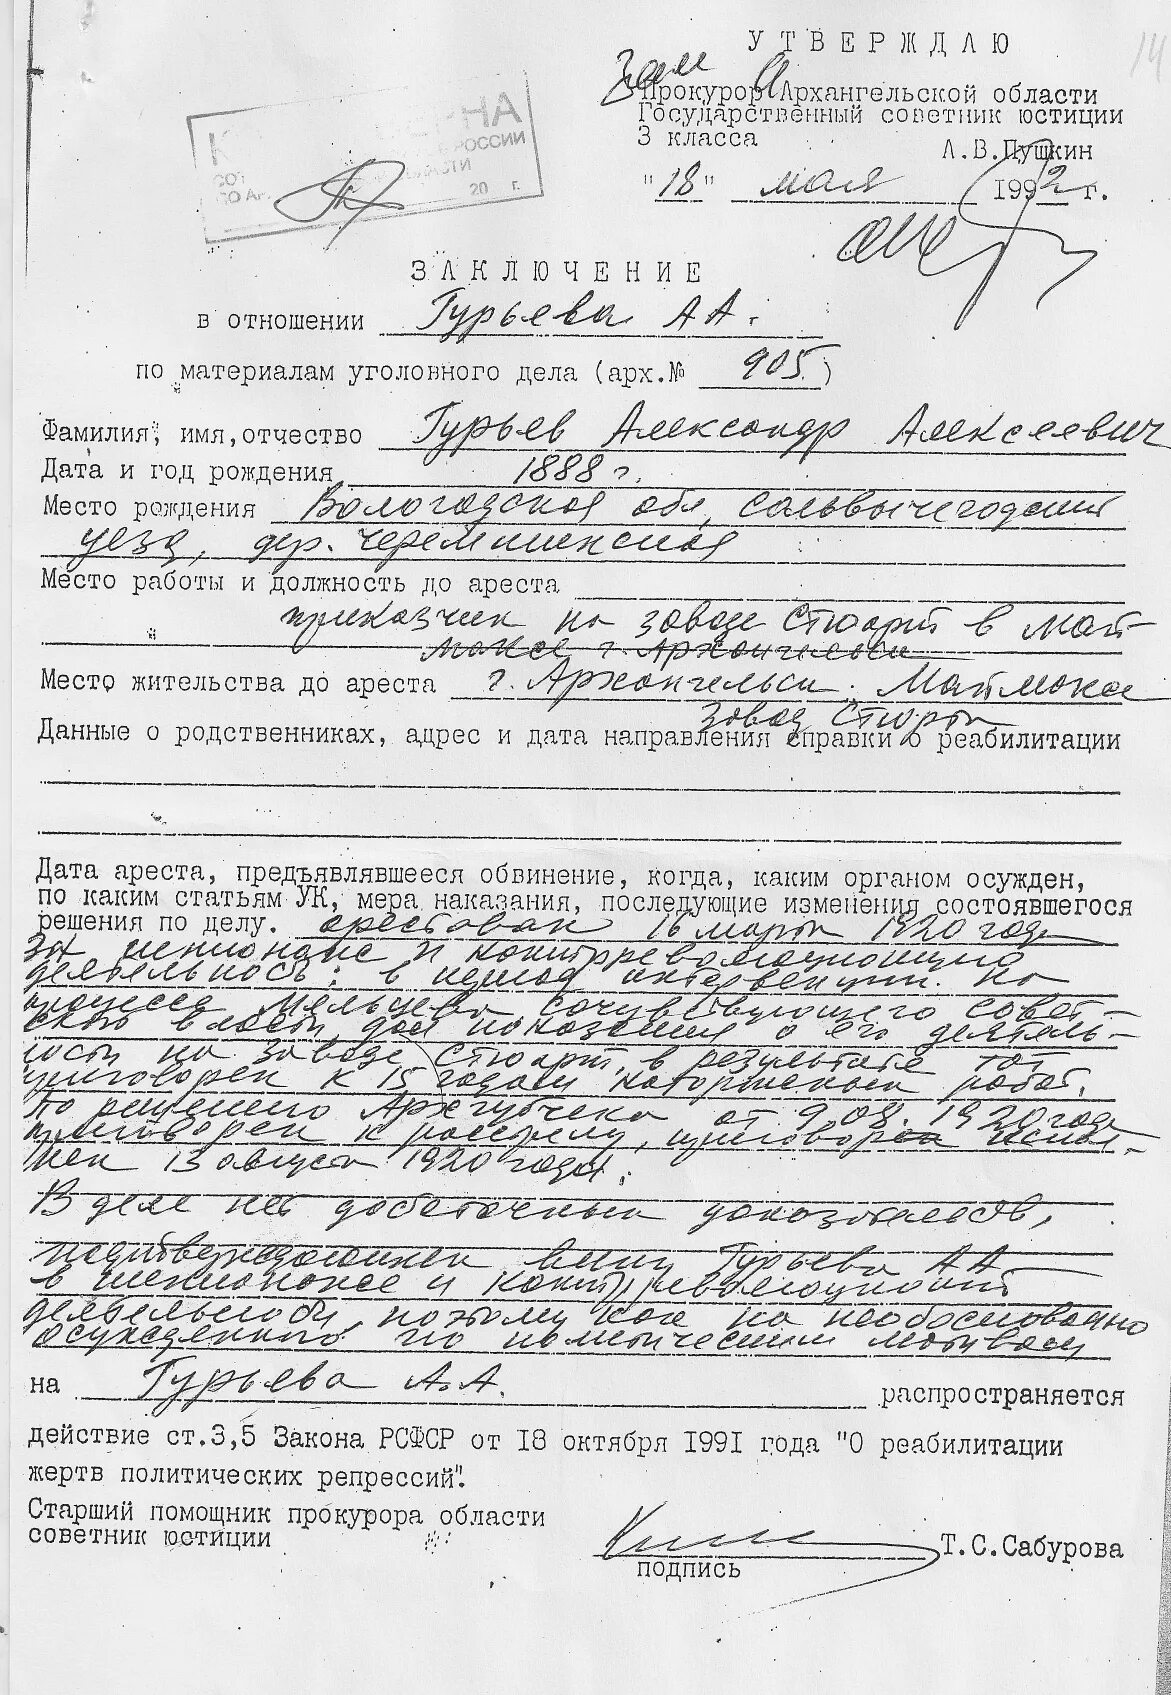 14
УТВЕРЖДАЮ
Зам
Прокурора Архангельской области
Государственный советник юстиции
3 класса
А.В.Пушкин
"18" мая 1992 г.
РОССИИ
20 г.
ЗАКЛЮЧЕНИЕ
в отношении Гурьева А А.
по материалам уголовного дела (арх.№ 905)
Фамилия, имя, отчество Гурьев Александр Алексеевич
Дата и год рождения 1888 г.
Место рождения Вологодская обл, Сольвычегодский
уезд, дер. Черемшинская
Место работы и должность до ареста
приказчик на заводе Стюарт в Май-
максе г. Архангельск
Место жительства до ареста г. Архангельск. Маймакса
завод Стюарт
Данные о родственниках, адрес и дата направления справки о реабилитации
Дата ареста, предъявлявшееся обвинение, когда, каким органом осужден,
по каким статьям УК, мера наказания, последующие изменения состоявшегося
решения по делу. арестован 16 марта 1920 года
за шпионаж и контрреволюционную
деятельность: в период интервенции. На
процессе Мяльцева, сочувствующего совет-
ской власти, дал показания о его деятель-
ности на заводе Стюарт, в результате тот
приговорен к 15 годам каторжных работ.
По решению Архгубчека от 9.08.1920 года
приговорен к расстрелу, приговор испол-
нен 13 августа 1920 года.
В деле нет достаточных доказательств,
подтверждающих вину Гурьева А А
в шпионаже и контрреволюционной
деятельности, поэтому как на необоснованно
осужденного по политическим мотивам
на Гурьева А.А. распространяется
действие ст.3,5 Закона РСФСР от 18 октября 1991 года "О реабилитации
жертв политических репрессий".
Старший помощник прокурора области
советник юстиции
Т.С.Сабурова
подпись